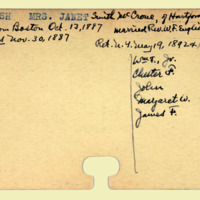 SH MRS. JANET Smith McCrone, of Hartford
om Boston Oct. 17, 1887 married Rev. W. F. English
d Nov. 30, 1887
Ret. N.Y. May 19, 1892
Wm. F., Jr.
Chester F.
John
Margaret W.
James F.